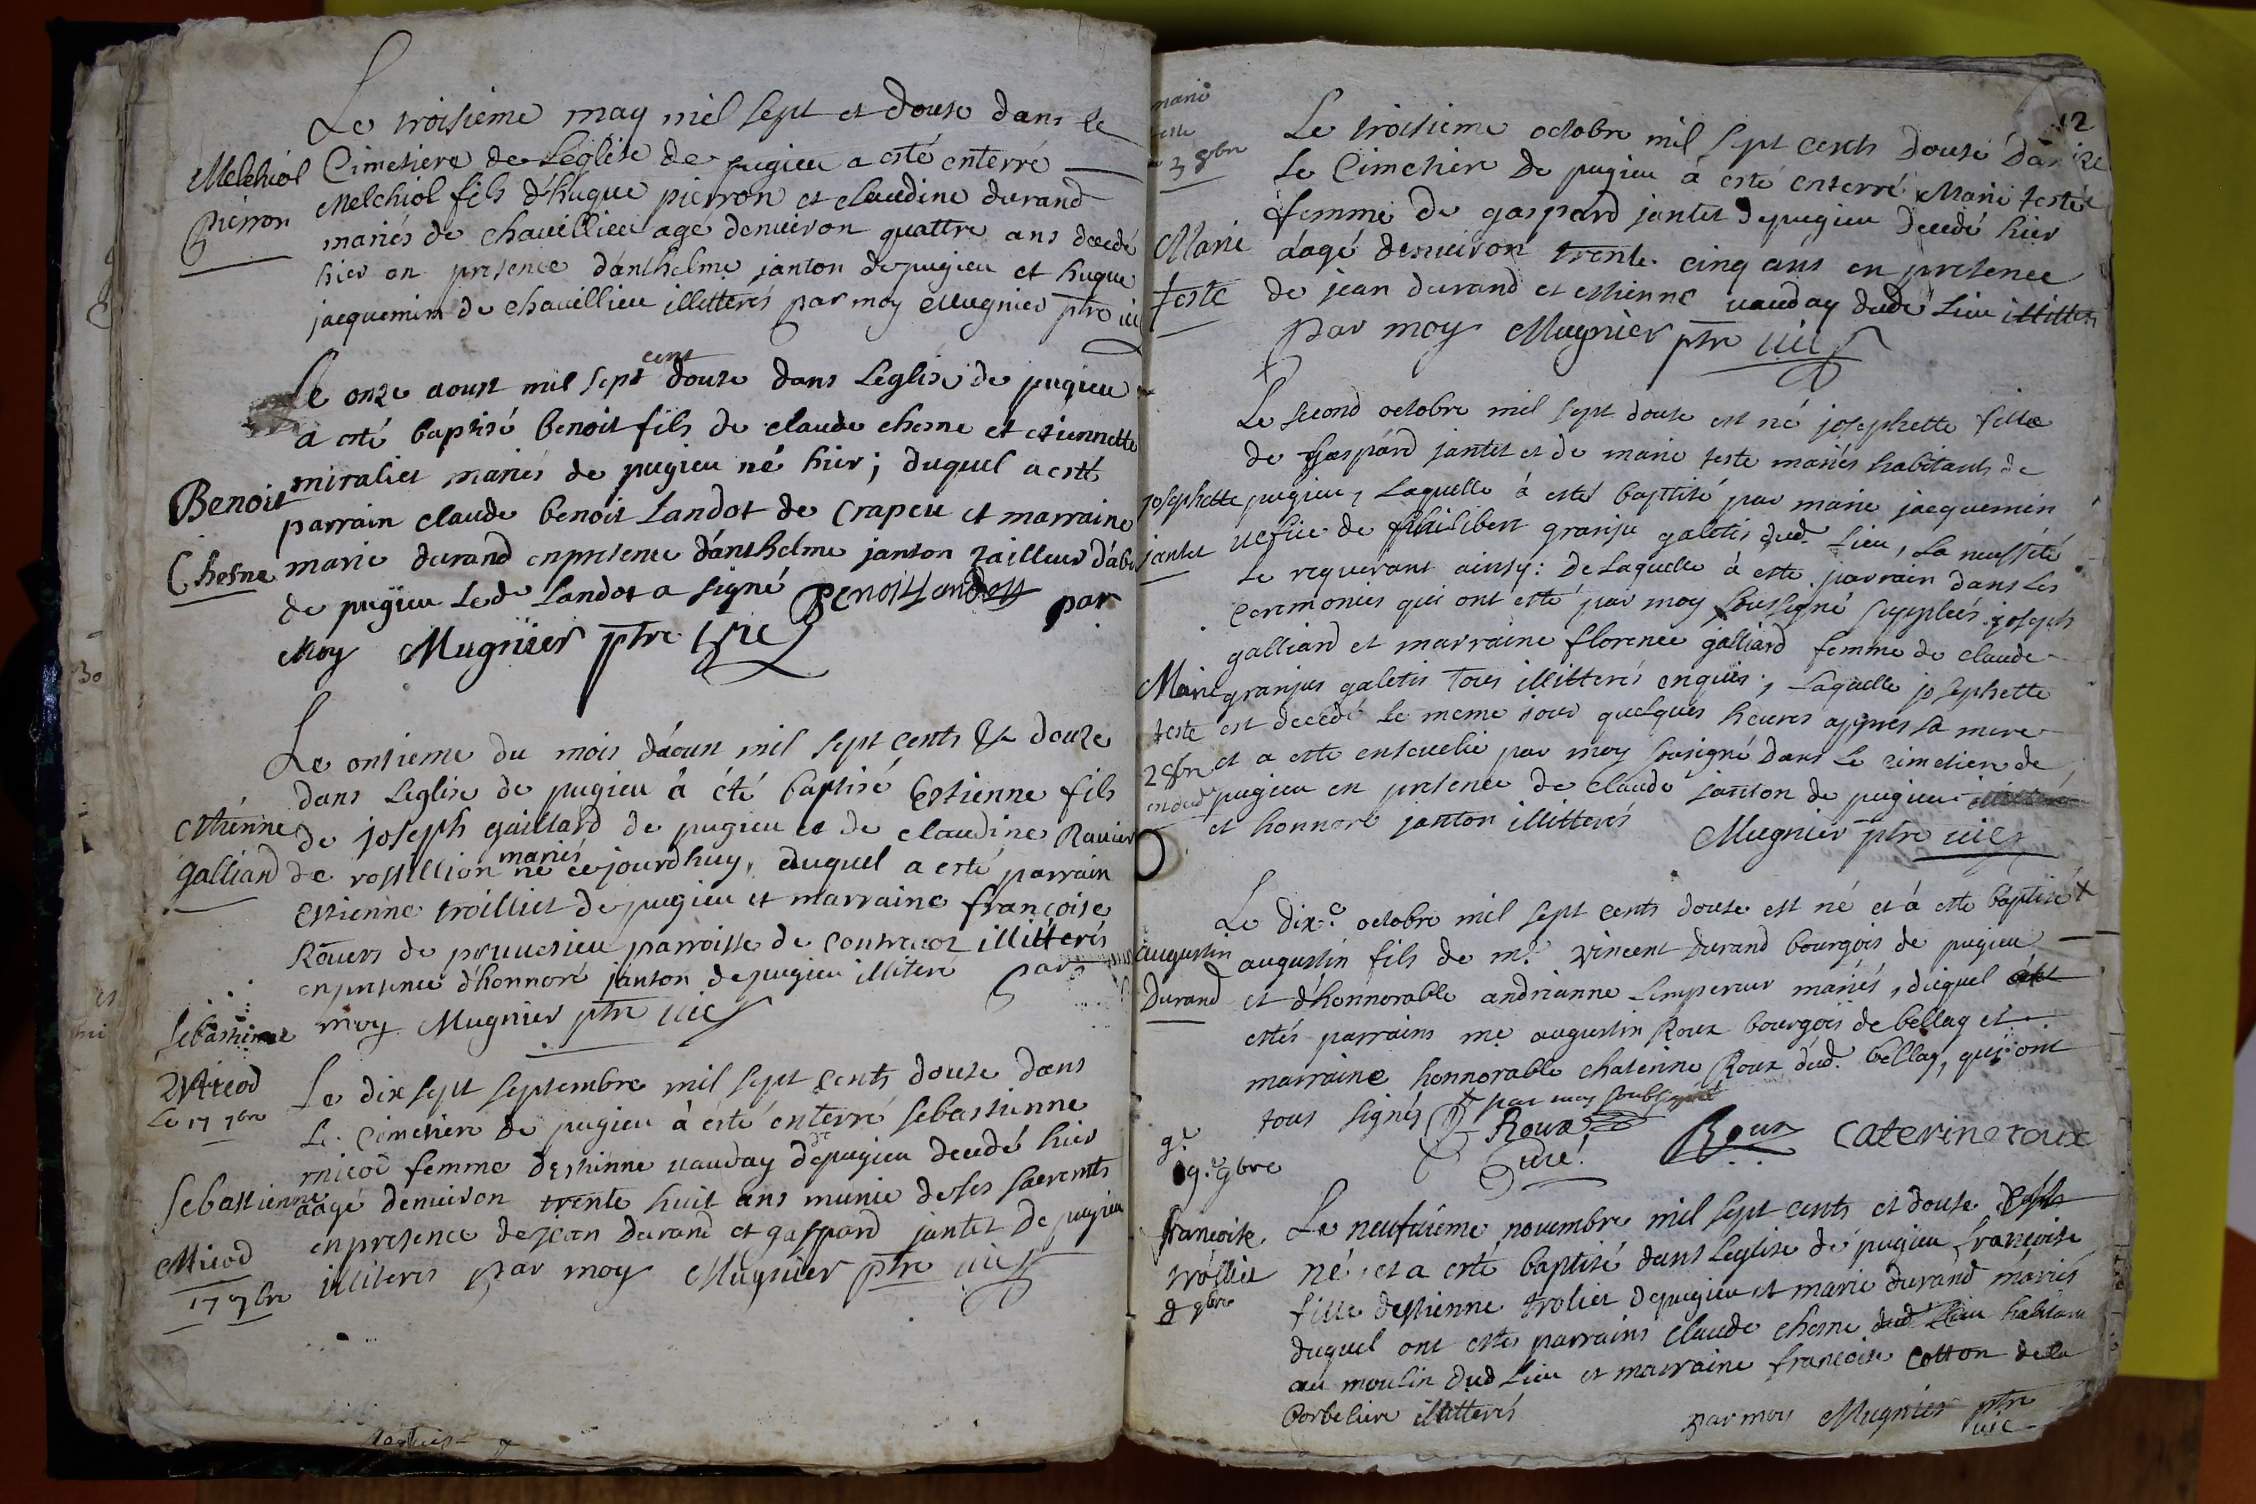 Le troisieme may mil sept et douse dans le
Melchiol
Pierron
Cimetiere de Leglise de pugieu a esté enterré
Melchiol fils d'hugue pierron et claudine durand
mariés de chavillieu agé denuiron quattre ans decedé
hier en presence d'anthelme janton de pugieu et hugue
jacquemin de chavillieu illitterés par moy Mugnier ptre vic
Benoit
Chesne
Le onze aoust mil sept cent douse dans Leglise de pugieu
a esté baptisé benoit fils de claude chesne et etiennette
miraliet mariés de pugieu né hier; duquel a esté
parrain claude benoit Landot de Crapeu et marraine
marie durand enpresence d'anthelme janton tailleur d'abi
de pugieu Led Landot a signé Benoit Landoz par
Moy Mugnier ptre vic
Estienne
galliard
Le onsieme du mois d'aoust mil sept cents & douze
dans Leglise de pugieu à été baptisé Estienne fils
de joseph gaillard de pugieu et de claudine Ravier
de rossillion mariés né cejourdhuy, duquel a esté parrain
estienne troilliet de pugieu et marraine françoise
Ravers de pruuesieu parroisse de Contreuoz illitterés
enpresence d'honnoré janton de pugieu illiteré par
moy Mugnier ptre vic
Sebastienne
Micod
Le 17 7bre
Sebastienne
Micod
17 7bre
Le dix sept septembre mil sept cents douse dans
Le Cimetiere de pugieu à esté enterré sebastienne
micod femme d'estienne vauday de pugieu decedé hier
aagé denuiron trente huit ans munie de ses sacrements
enpresence de jean Durand et gaspard jantet de pugieu
illiteres par moy Mugnier ptre vic
12
marie
teste
3 8bre
Marie
teste
Le troisieme octobre mil sept cents douse dans
Le Cimetiere De pugieu à esté enterré Marie teste
femme de gaspard jantet de pugieu decedé hier
aagé denuiron trente cinq ans en presence
de jean durand et estienne vauday dudt Lieu illitteres
par moy Mugnier ptre vic
josephette
jantet
Marie
teste
2 8bre
Le second octobre mil sept douse est né josephette fille
de gaspard jantet et de marie teste mariés habitants de
pugieu, Laquelle à esté baptisé par marie jacquemin
uefue de philibert granju galetis dud. Lieu, La necessité
Le requerant ainsy: De Laquelle à esté parrain dans Les
ceremonies qui ont esté par moy soussigné supplées joseph
galliard et marraine florence galliard femme de claude
granjus galetis tous illitterés enquis, Laquelle josephette
est decedé Le meme jour quelques heures appres sa mere
et a esté enseuelie par moy sousigné Dans Le cimetiere de
pugieu en presence de claude janton de pugieu
et honnoré janton illitterés Mugnier ptre vic
augustin
Durand
Le dixe octobre mil sept cents douse est né et à esté baptisé
augustin fils de mr vincent Durand bourgois de pugieu
et d'honnorable andrianne Lempereur mariés, duquel
estés parrains me augustin Roux bourgois de bellay et
marraine honnorable chaterine Roux dud. bellay, qui ont
tous signés par moy soubsigné
Roux
Curé
Roux Caterine roux
9e 9bre
françoise
trolliet
9 9bre
Le neufuieme novembre mil sept cents et douse
né, et a esté baptisé dans Leglise de pugieu françoise
fille destienne troliet de pugieu et marie durand mariés
duquel ont estés parrains claude chesne habitant
au moulin dud Lieu et marraine françoise Cotton de la
Corbeliere illitterés par moy Mugnier ptre
vic